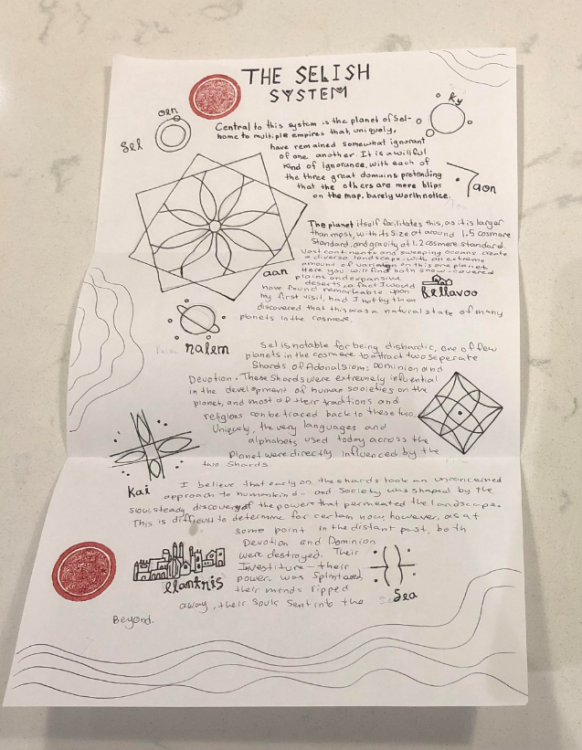 THE SELISH
SYSTEM
oen
Sel
ky
Central to this system is the planet of Sel-
home to multiple empires that, uniquely,
have remained somewhat ignorant
of one another. It is a willful
kind of ignorance, with each of
the three great domains pretending
that the others are mere blips
on the map, barely worth notice.
aon
The planet itself facilitates this, as it is larger
than most, with its size at around 1.5 cosmere
standard, and gravity at 1.2 cosmere standard.
Vast continents and sweeping oceans create
a diverse landscape, with an extreme
amount of variation on this one planet.
Here you will find both snow-covered
plains and expansive
deserts, so that I would
have found remarkable upon
my first visit, had I not by then
discovered that this was a natural state of many
planets in the cosmere.
aan
Bellavoo
nalem
Sel is notable for being dishardic, one of few
planets in the cosmere to attract two seperate
Shards of Adonalsium: Dominion and
Devotion. These Shards were extremely influential
in the development of human societies on the
planet, and most of their traditions and
religions can be traced back to these two.
Uniquely, the very languages and
alphabets used today across the
Planet were directly influenced by the
two Shards.
kai
I believe that early on, the shards took an unconcerned
approach to humankind- and Society was shaped by the
slow, steady discovery of the powers that permeated the landscape.
This is difficult to determine for certain now, however, as at
some point in the distant past, both
Devotion and Dominion
were destroyed. Their
Investiture - their
power - was Splintered,
their minds ripped
away, their souls sent into the
Beyond.
Elantnis
Sea